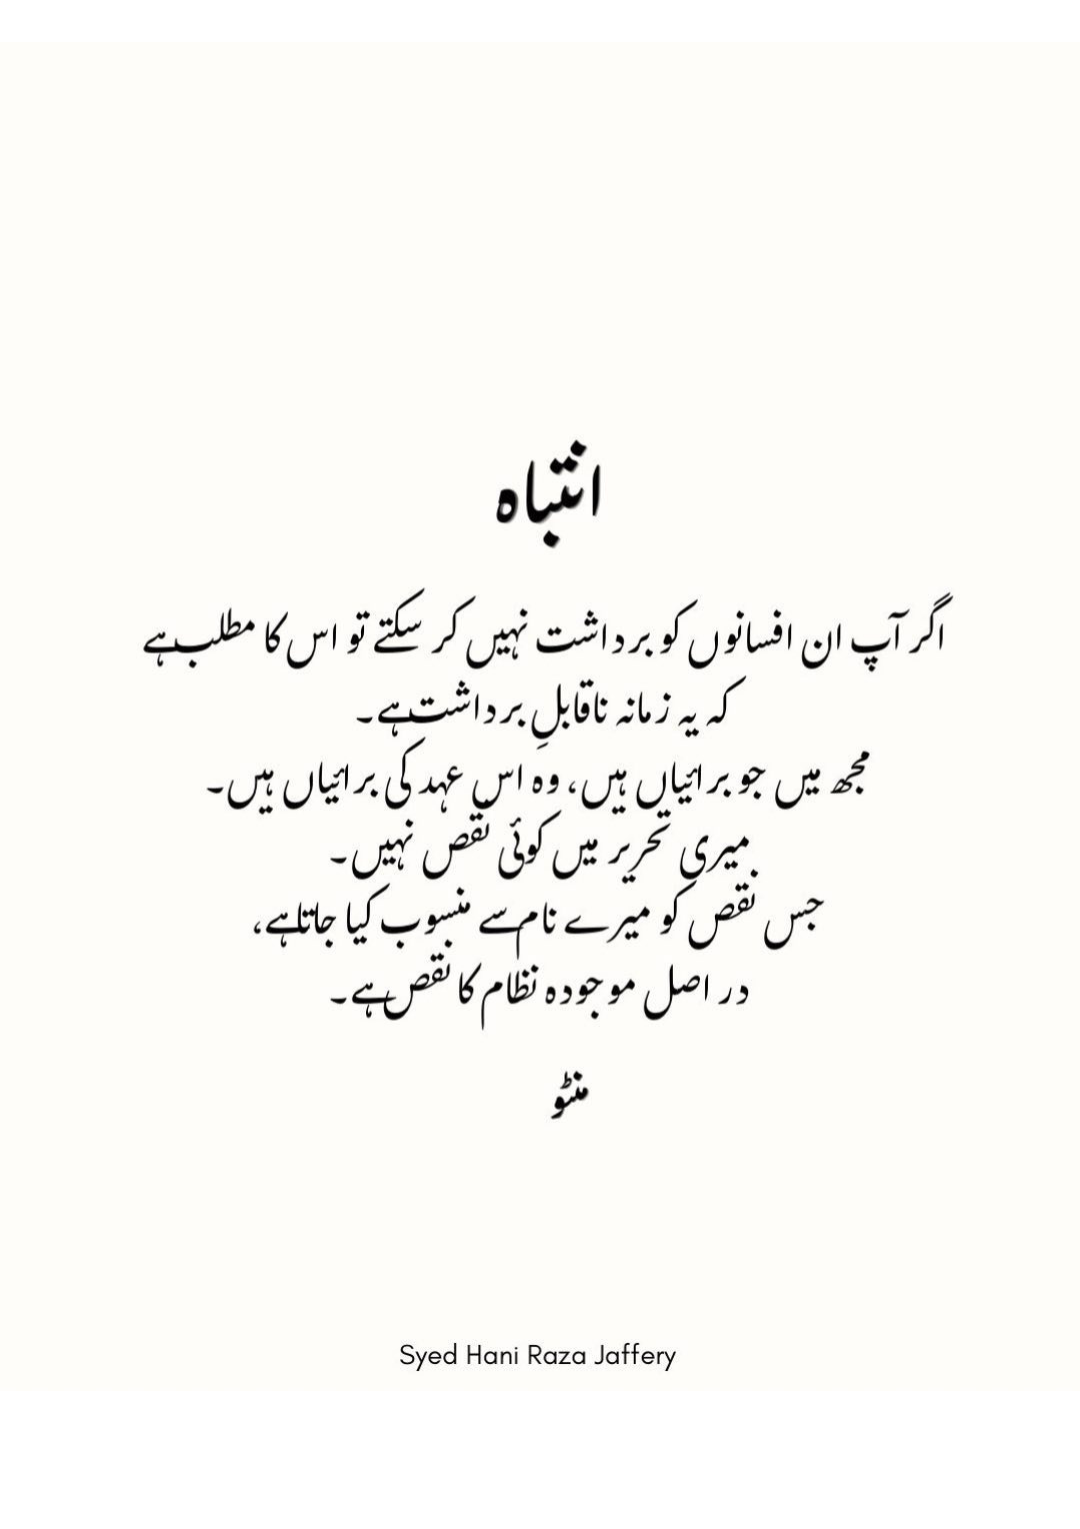 انتباہ
اگر آپ ان افسانوں کو برداشت نہیں کر سکتے تو اس کا مطلب ہے
کہ یہ زمانہ ناقابلِ برداشت ہے۔
مجھ میں جو برائیاں ہیں، وہ اس عہد کی برائیاں ہیں۔
میری تحریر میں کوئی نقص نہیں۔
جس نقص کو میرے نام سے منسوب کیا جاتا ہے،
در اصل موجودہ نظام کا نقص ہے۔
منٹو
Syed Hani Raza Jaffery